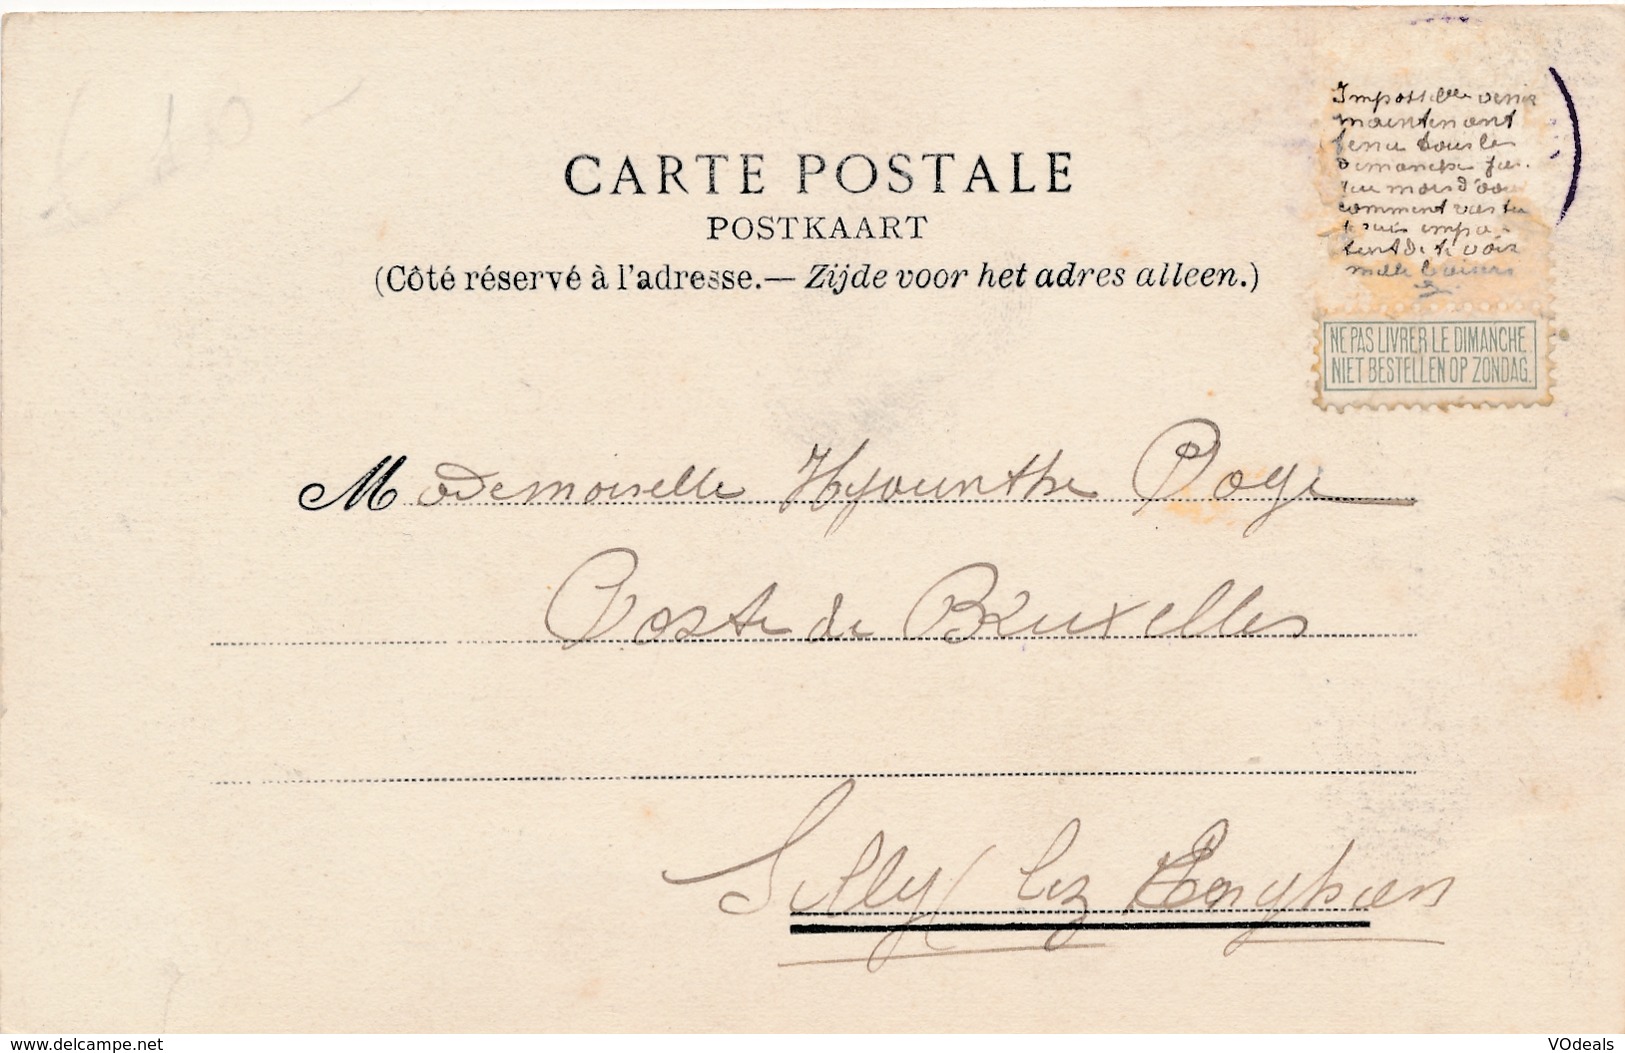 CARTE POSTALE
POSTKAART
(Côté réservé à l'adresse.— Zijde voor het adres alleen.)
Impossible venir
maintenant
tenu tous les
dimanche jus.
que mois d'aou
comment vas tu
impa
tent de te voir
mille baisers
NE PAS LIVRER LE DIMANCHE.
NIET BESTELLEN OP ZONDAG.
Mademoiselle Hyacinthe
Poste de Bruxelles
Silly lez Enghien
www.delcampe.net
VOdeals